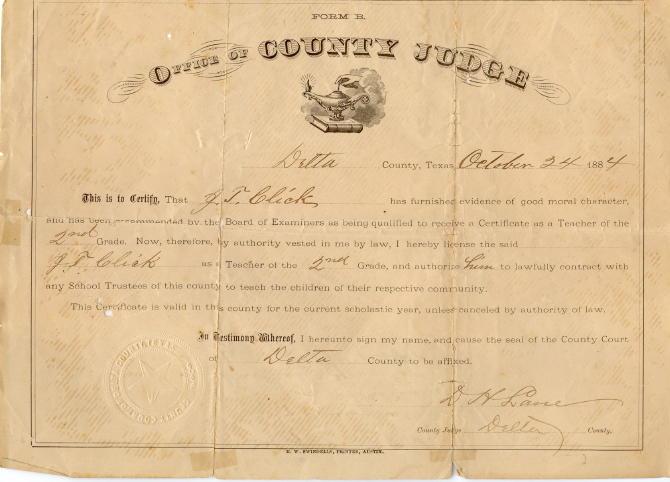 FORM B.
OFFICE OF COUNTY JUDGE
Delta County, Texas, October 24 1884
This is to Certify, That J. T. Click has furnished evidence of good moral character,
and has been recommended by the Board of Examiners as being qualified to receive a Certificate as a Teacher of the
2nd Grade. Now, therefore, by authority vested in me by law, I hereby license the said
J. T. Click as a Teacher of the 2nd Grade, and authorize him to lawfully contract with
any School Trustees of this county to teach the children of their respective community.
This Certificate is valid in this county for the current scholastic year, unless canceled by authority of law.
In Testimony Whereof, I hereunto sign my name, and cause the seal of the County Court
of Delta County to be affixed.
D H Lane
County Judge Delta County.
E. W. SWINDELLS, PRINTER, AUSTIN.